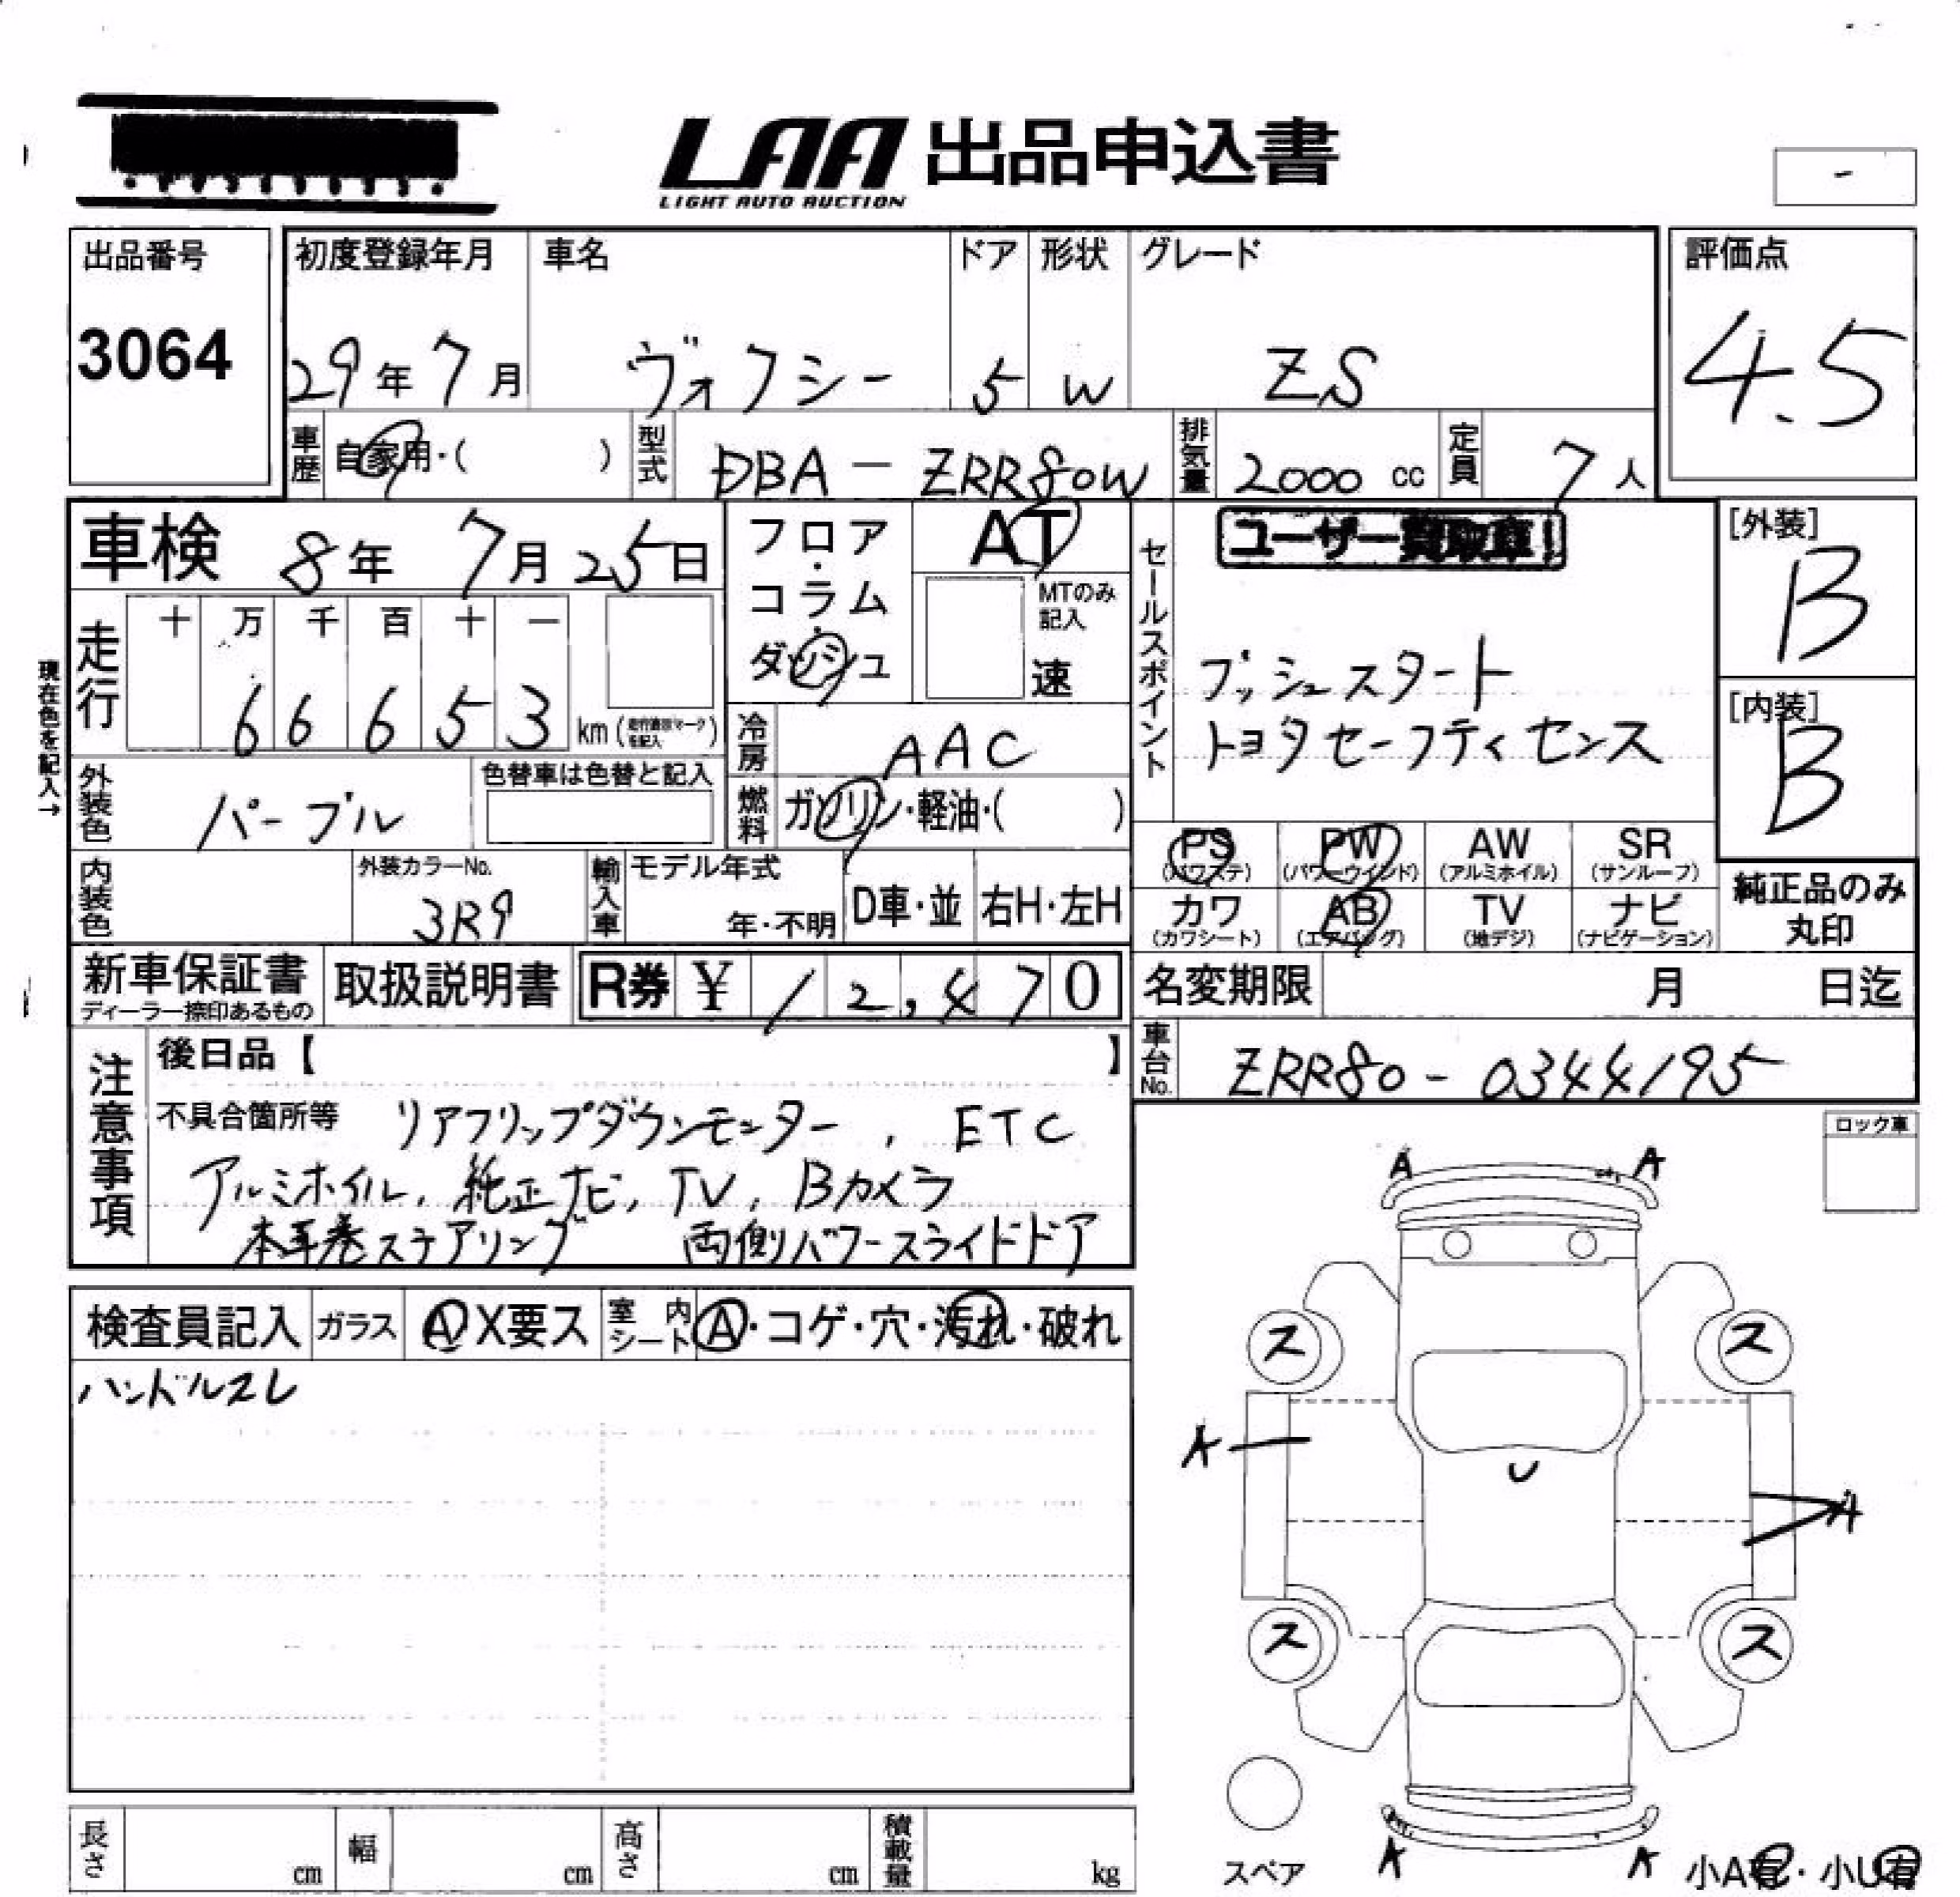 LAA 出品申込書
LIGHT AUTO AUCTION
-
出品番号
3064
初度登録年月
29年 7月
車名
ヴォクシー
ドア
5
形状
W
グレード
ZS
評価点
4.5
車歴 自家用・( )
型式 DBA - ZRR80W
排気量 2000 cc
定員 7人
車検 8年 7月 25日
フロア・コラム・ダッシュ
AT
MTのみ記入
速
現在色を記入→
走行
十 万 千 百 十 一
6 6 6 5 3 km
冷房 AAC
燃料 ガソリン・軽油・( )
外装色 パープル
色替車は色替と記入
内装色
外装カラーNo.
3R9
輸入車
モデル年式
年・不明
D車・並
右H・左H
セールスポイント
ユーザー買取車!
プッシュスタート
トヨタセーフティセンス
[外装]
B
[内装]
B
PS (パワステ)
PW (パワーウインド)
AW (アルミホイル)
SR (サンルーフ)
カワ (カワシート)
AB (エアバッグ)
TV (地デジ)
ナビ (ナビゲーション)
純正品のみ丸印
新車保証書
ディーラー捺印あるもの
取扱説明書
R券 ¥ 12,470
名変期限 月 日迄
車台No. ZRR80-0344195
注意事項
後日品【 】
不具合箇所等 リアフリップダウンモニター, ETC
アルミホイル, 純正ナビ, TV, Bカメラ
本革巻ステアリング 両側パワースライドドア
ロック車
検査員記入
ガラス A X要ス
室内シート A・コゲ・穴・汚れ・破れ
ハンドルスレ
A A
ス ス
A
U
A
ス ス
A A
スペア
小A有・小U有
長さ cm
幅 cm
高さ cm
積載量 kg